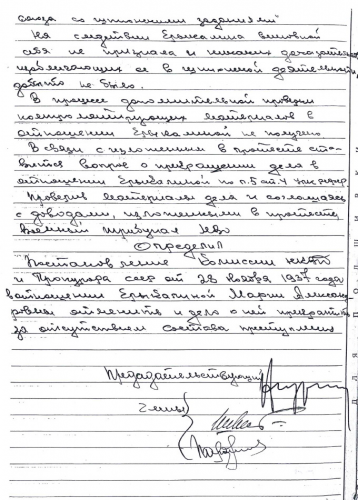 союза со шпионскими заданиями"
На следствии виновной
себя не признала и никаких доказательств
изобличающих ее в шпионской деятельности
добыто не было.
В процессе дополнительной проверки
компрометирующих материалов в
отношении не получено
В связи с изложенным в протесте ста-
вится вопрос о прекращении дела в
отношении по п.5 ст.4
Проверив материалы дела и соглашаясь
с доводами, изложенными в протесте
Военный трибунал
Определил
Постановление Комиссии НКВД
и Прокурора СССР от 28 ноября 1937 года
в отношении Марии Алексан-
ровны отменить и дело о ней прекратить
за отсутствием состава преступления
Председательствующий
Члены